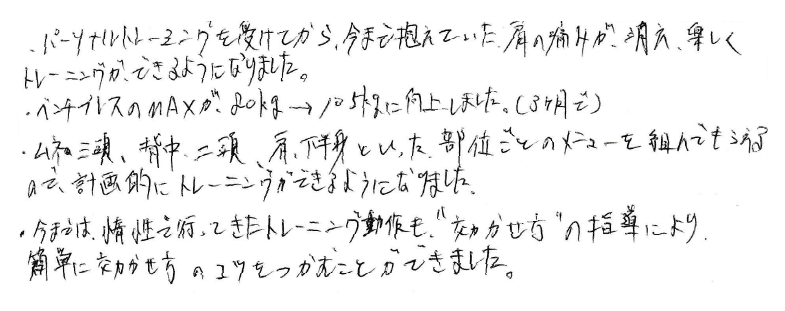 ・パーソナルトレーニングを受けてから、今まで抱えていた肩の痛みが、消え、楽しく
トレーニングができるようになりました。
・ベンチプレスのMAXが、80kg→105kgに向上しました。(3ヶ月で)
・ムネ、三頭、背中、二頭、肩、下半身といった部位ごとのメニューを組んでもらえる
ので、計画的にトレーニングができるようになりました。
・今までは、惰性で行ってきたトレーニング動作も、"効かせ方"の指導により、
簡単に効かせ方のコツをつかむことができました。